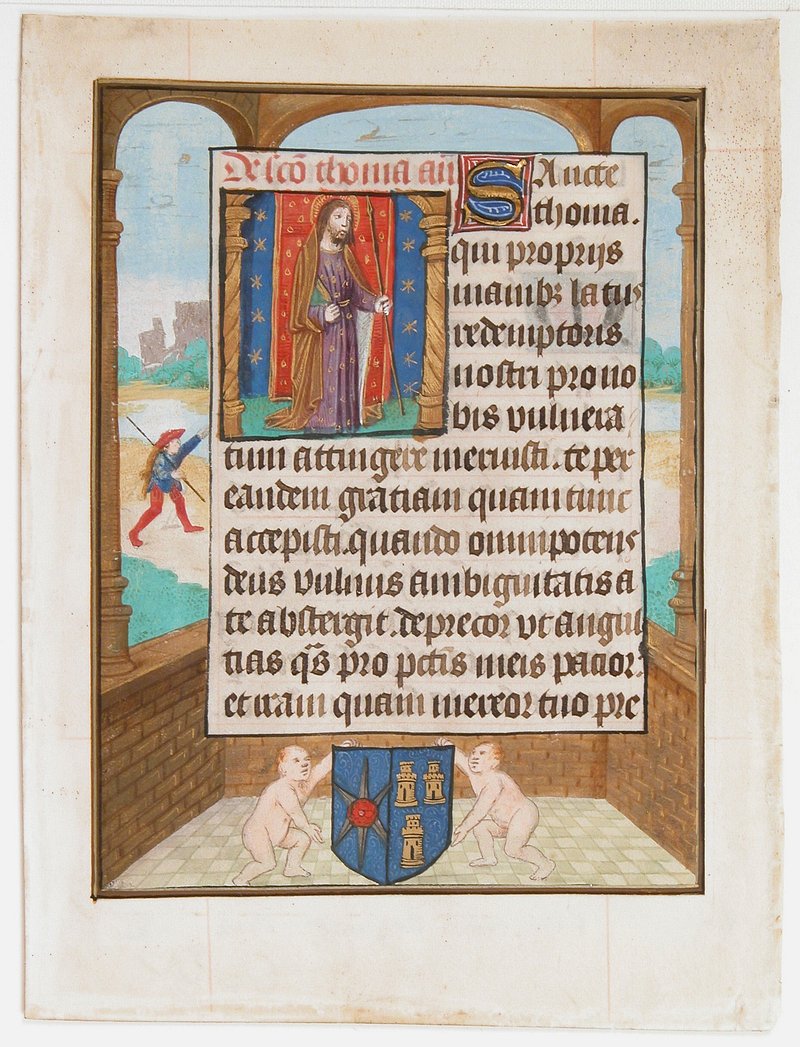 De scō thoma añ
Sancte
thoma.
qui proprijs
manibꝫ latus
redemptoris
nostri pro no
bis vulnera
tum attingere meruisti. te per
eandem gratiam quam tunc
accepisti. quando omnipotens
deus vulnus ambiguitatis a
te abstergit. deprecor vt angus
tias q̄s p̄ro pctīs meis pacior.
et iram quam mereor tuo pre